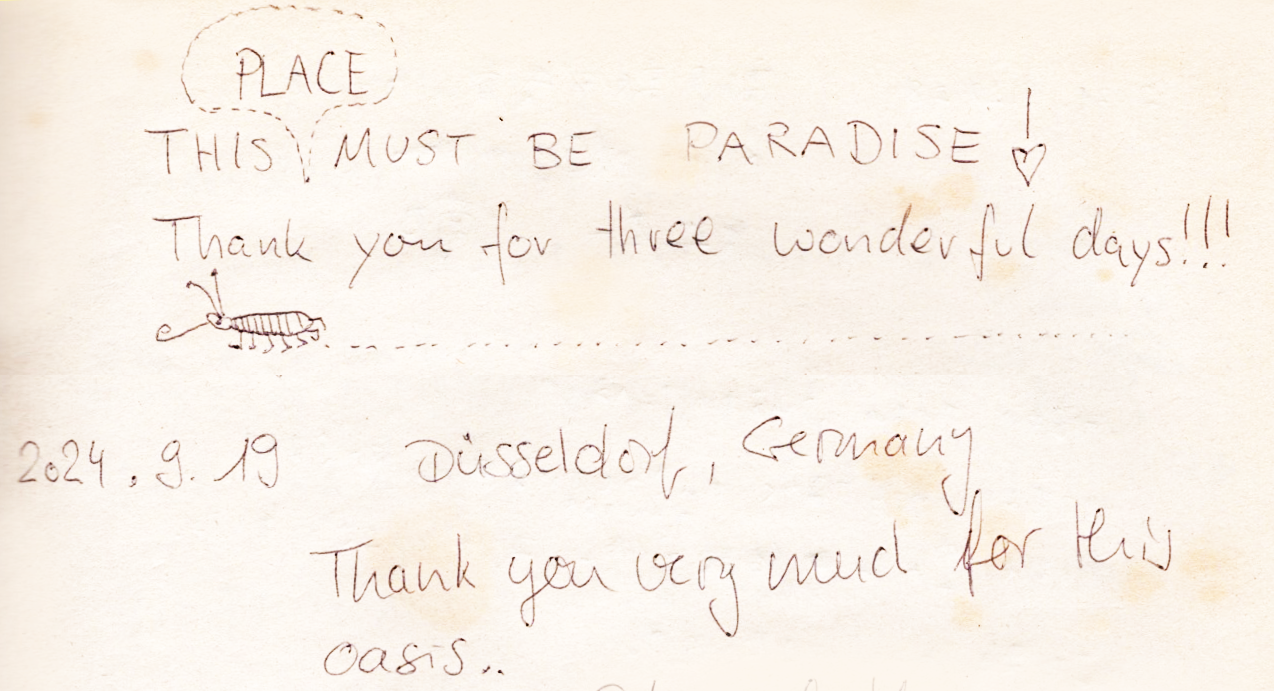 PLACE
THIS MUST BE PARADISE
Thank you for three wonderful days!!!
2024.9.19 Düsseldorf, Germany
Thank you very much for this
oasis..